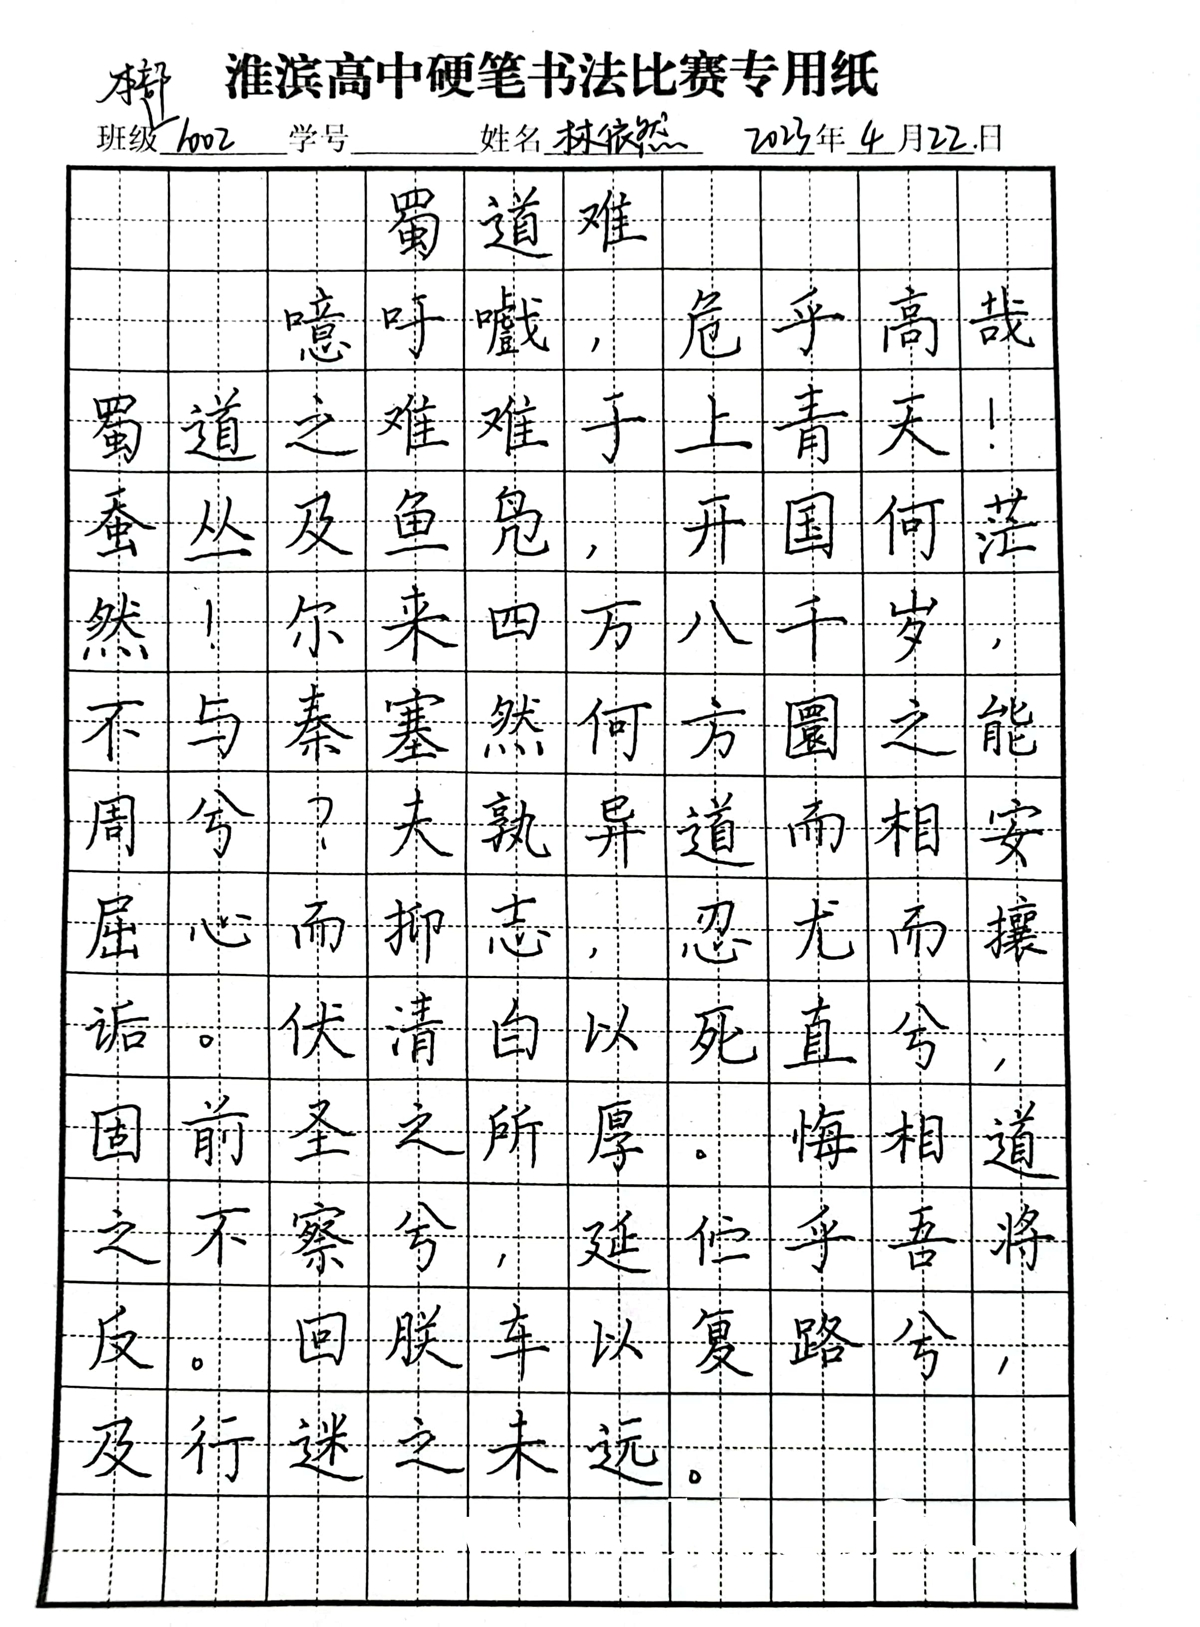 淮滨高中硬笔书法比赛专用纸
班级 1002 学号 姓名 林依然 2023年4月22日
蜀道难
噫吁嚱,危乎高哉
蜀道之难难于上青天!
蚕丛及鱼凫,开国何茫
然!尔来四万八千岁,
不与秦塞然何方圜之能
周兮?夫孰异道而相安
屈心而抑志,忍尤而攘
诟。伏清白以死直兮,
固前圣之所厚。悔相道
之不察兮,延伫乎吾将
反。回朕车以复路兮,
及行迷之未远。